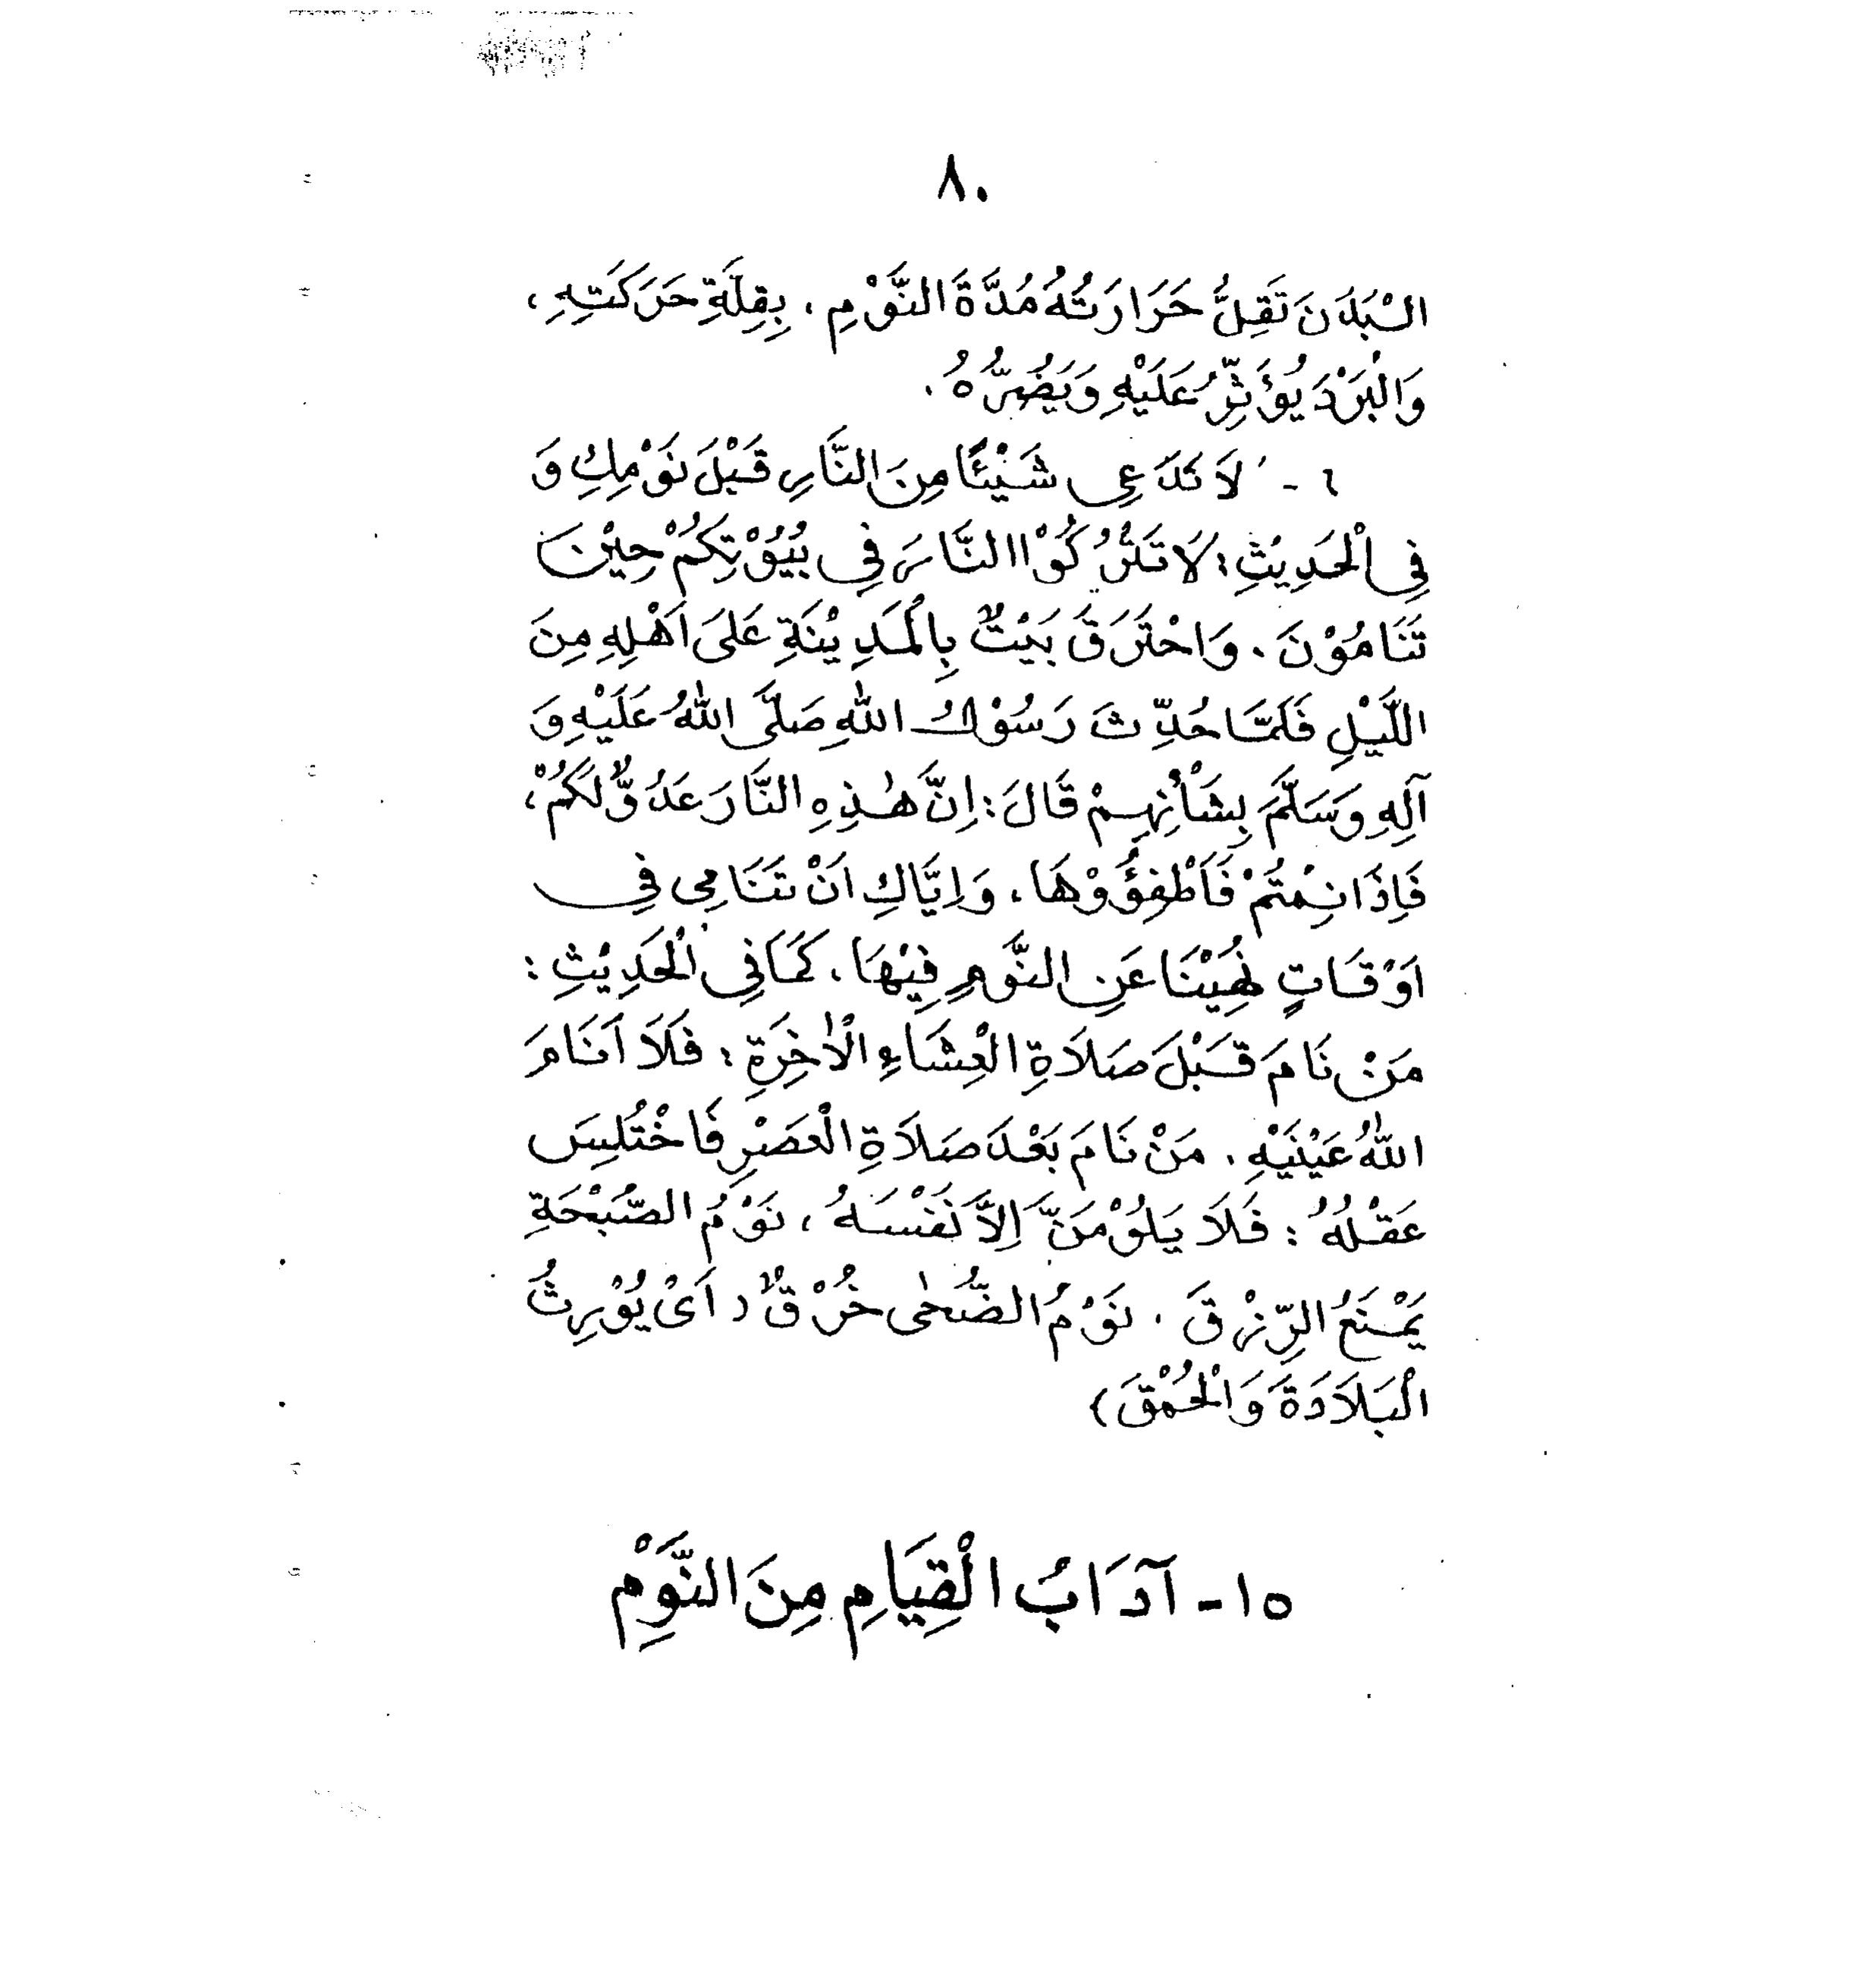 ٨٠
الْبَدَنَ تَقِلُّ حَرَارَتُهُ مُدَّةَ النَّوْمِ، بِقِلَّةِ حَرَكَتِهِ،
وَالْبَرْدَ يُؤَثِّرُ عَلَيْهِ وَيَضُرُّهُ.
٦ - لَا تَدَعِى شَيْئًا مِنَ النَّارِ قَبْلَ نَوْمِكِ وَ
فِى الْحَدِيْثِ: لَا تَتْرُكُوْا النَّارَ فِى بُيُوْتِكُمْ حِيْنَ
تَنَامُوْنَ. وَاحْتَرَقَ بَيْتٌ بِالْمَدِيْنَةِ عَلَى اَهْلِهِ مِنَ
اللَّيْلِ فَلَمَّا حُدِّثَ رَسُوْلُ اللهِ صَلَّى اللهُ عَلَيْهِ وَ
آلِهِ وَسَلَّمَ بِشَأْنِهِمْ قَالَ: اِنَّ هٰذِهِ النَّارَ عَدُوٌّ لَكُمْ،
فَاِذَا نِمْتُمْ فَاَطْفِؤُوْهَا، وَاِيَّاكِ اَنْ تَنَامِى فِى
اَوْقَاتٍ نُهِيْنَا عَنِ النَّوْمِ فِيْهَا، كَمَا فِى الْحَدِيْثِ:
مَنْ نَامَ قَبْلَ صَلَاةِ الْعِشَاءِ الْاٰخِرَةِ: فَلَا اَنَامَ
اللهُ عَيْنَيْهِ. مَنْ نَامَ بَعْدَ صَلَاةِ الْعَصْرِ فَاخْتُلِسَ
عَقْلُهُ: فَلَا يَلُوْمَنَّ اِلَّا نَفْسَهُ، نَوْمُ الصُّبْحَةِ
يَمْنَعُ الرِّزْقَ. نَوْمُ الضُّحٰى خُرْقٌ (اَىْ يُوْرِثُ
الْبَلَادَةَ وَالْحُمْقَ)
١٥ - آدَابُ الْقِيَامِ مِنَ النَّوْمِ